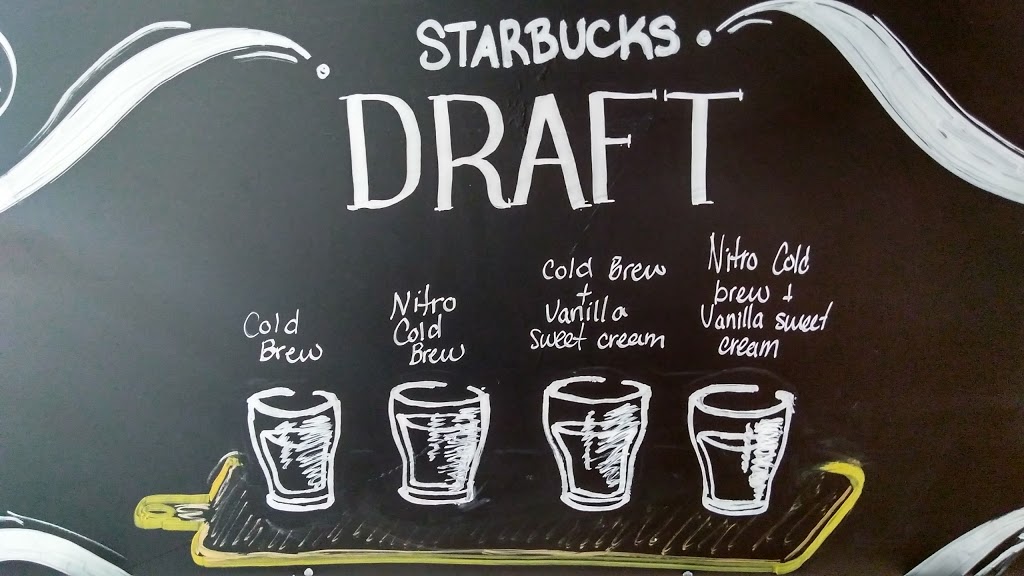 STARBUCKS
DRAFT
Cold
Brew
Nitro
Cold
Brew
Cold Brew
+
Vanilla
Sweet cream
Nitro Cold
brew +
Vanilla sweet
cream